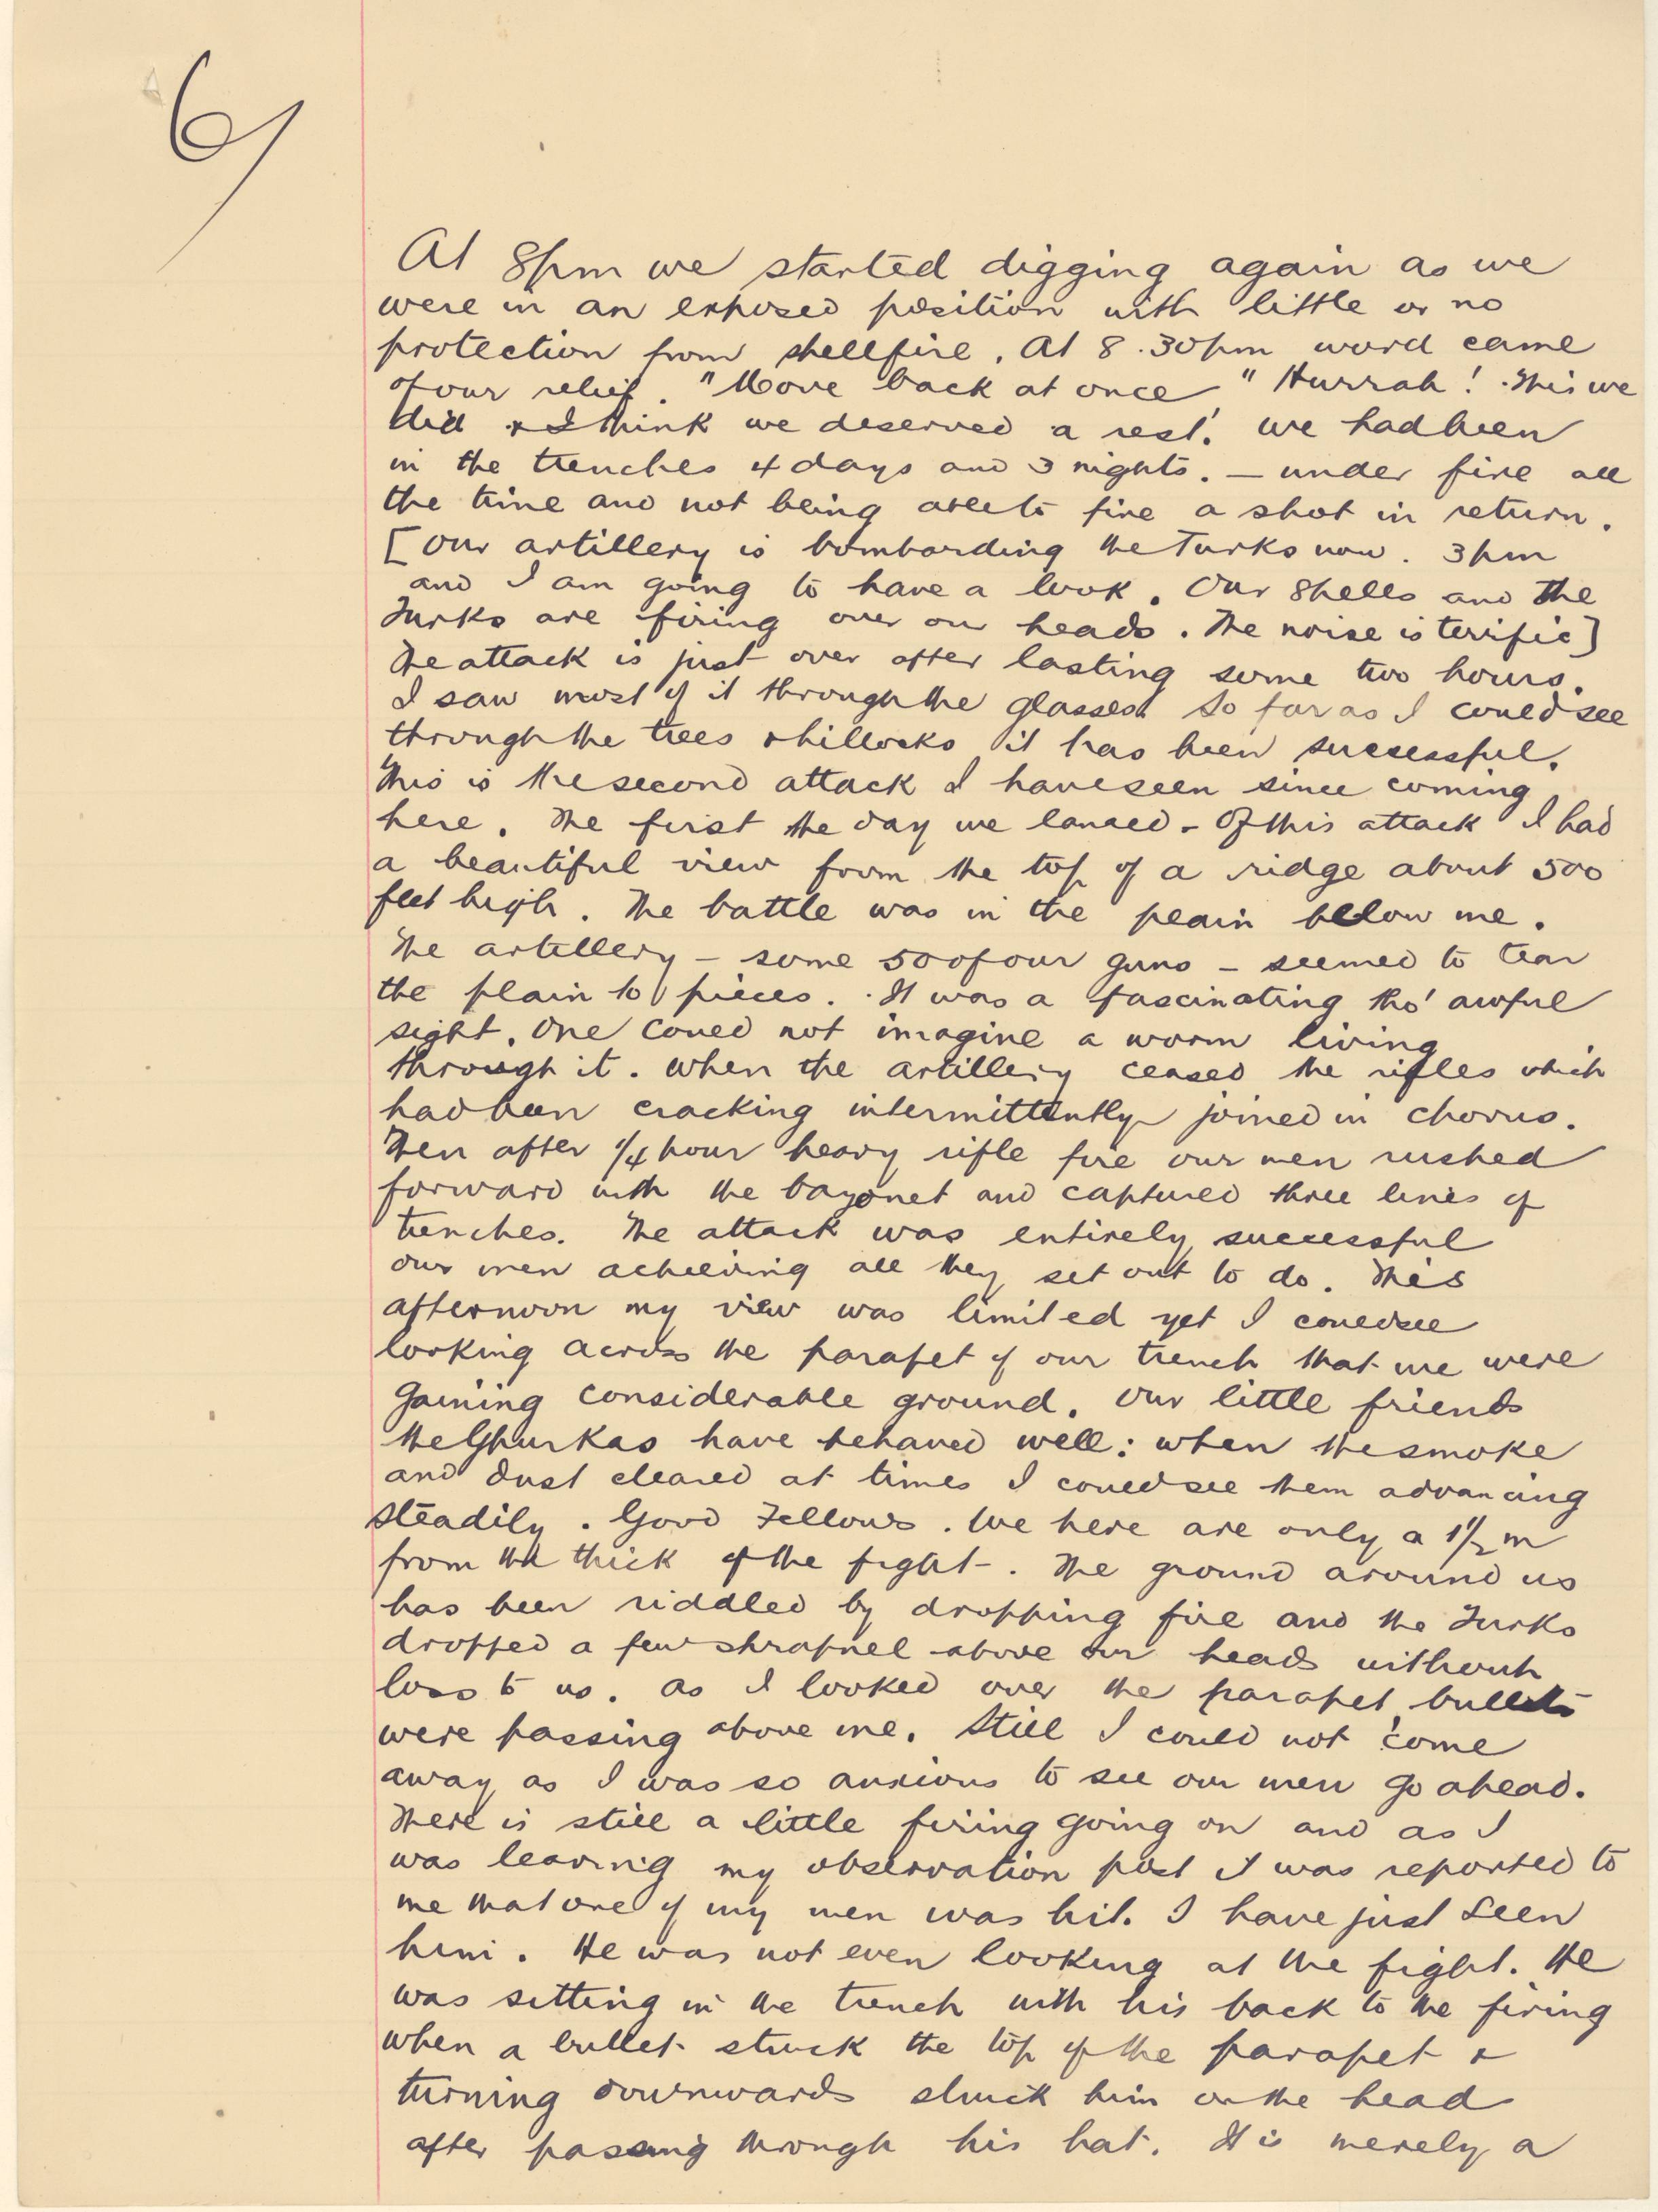 6/
At 8pm we started digging again as we
were in an exposed position with little or no
protection from shellfire. At 8.30pm word came
of our relief. "Move back at once" Hurrah! This we
did & I think we deserved a rest. we had been
in the trenches 4 days and 3 nights. — under fire all
the time and not being able to fire a shot in return.
[Our artillery is bombarding the Turks now. 3pm
and I am going to have a look. Our shells and the
Turks are firing over our heads. The noise is terrific]
The attack is just over after lasting some two hours.
I saw most of it through the glasses. So far as I could see
through the trees & hillocks it has been successful.
This is the second attack I have seen since coming
here. The first the day we landed - Of this attack I had
a beautiful view from the top of a ridge about 500
feet high. The battle was in the plain below me.
The artillery – some 50 of our guns – seemed to tear
the plain to pieces. It was a fascinating tho' awful
sight. One could not imagine a worm living
through it. When the artillery ceased the rifles which
had been cracking intermittently joined in chorus.
Then after 1/4 hour heavy rifle fire our men rushed
forward with the bayonet and captured three lines of
trenches. The attack was entirely successful
our men acheiving all they set out to do. This
afternoon my view was limited yet I could see
looking across the parapet of our trench that we were
gaining considerable ground. Our little friends
the Ghurkas have behaved well: when the smoke
and dust cleared at times I could see them advancing
steadily. Good Fellows. We here are only a 1½ m
from the thick of the fight. The ground around us
has been riddled by dropping fire and the Turks
dropped a few shrapnel above our heads without
loss to us. As I looked over the parapet bullets
were passing above me. Still I could not come
away as I was so anxious to see our men go ahead.
There is still a little firing going on and as I
was leaving my observation post it was reported to
me that one of my men was hit. I have just seen
him. He was not even looking at the fight. He
was sitting in the trench with his back to the firing
when a bullet struck the top of the parapet &
turning downwards struck him on the head
after passing through his hat. It is merely a